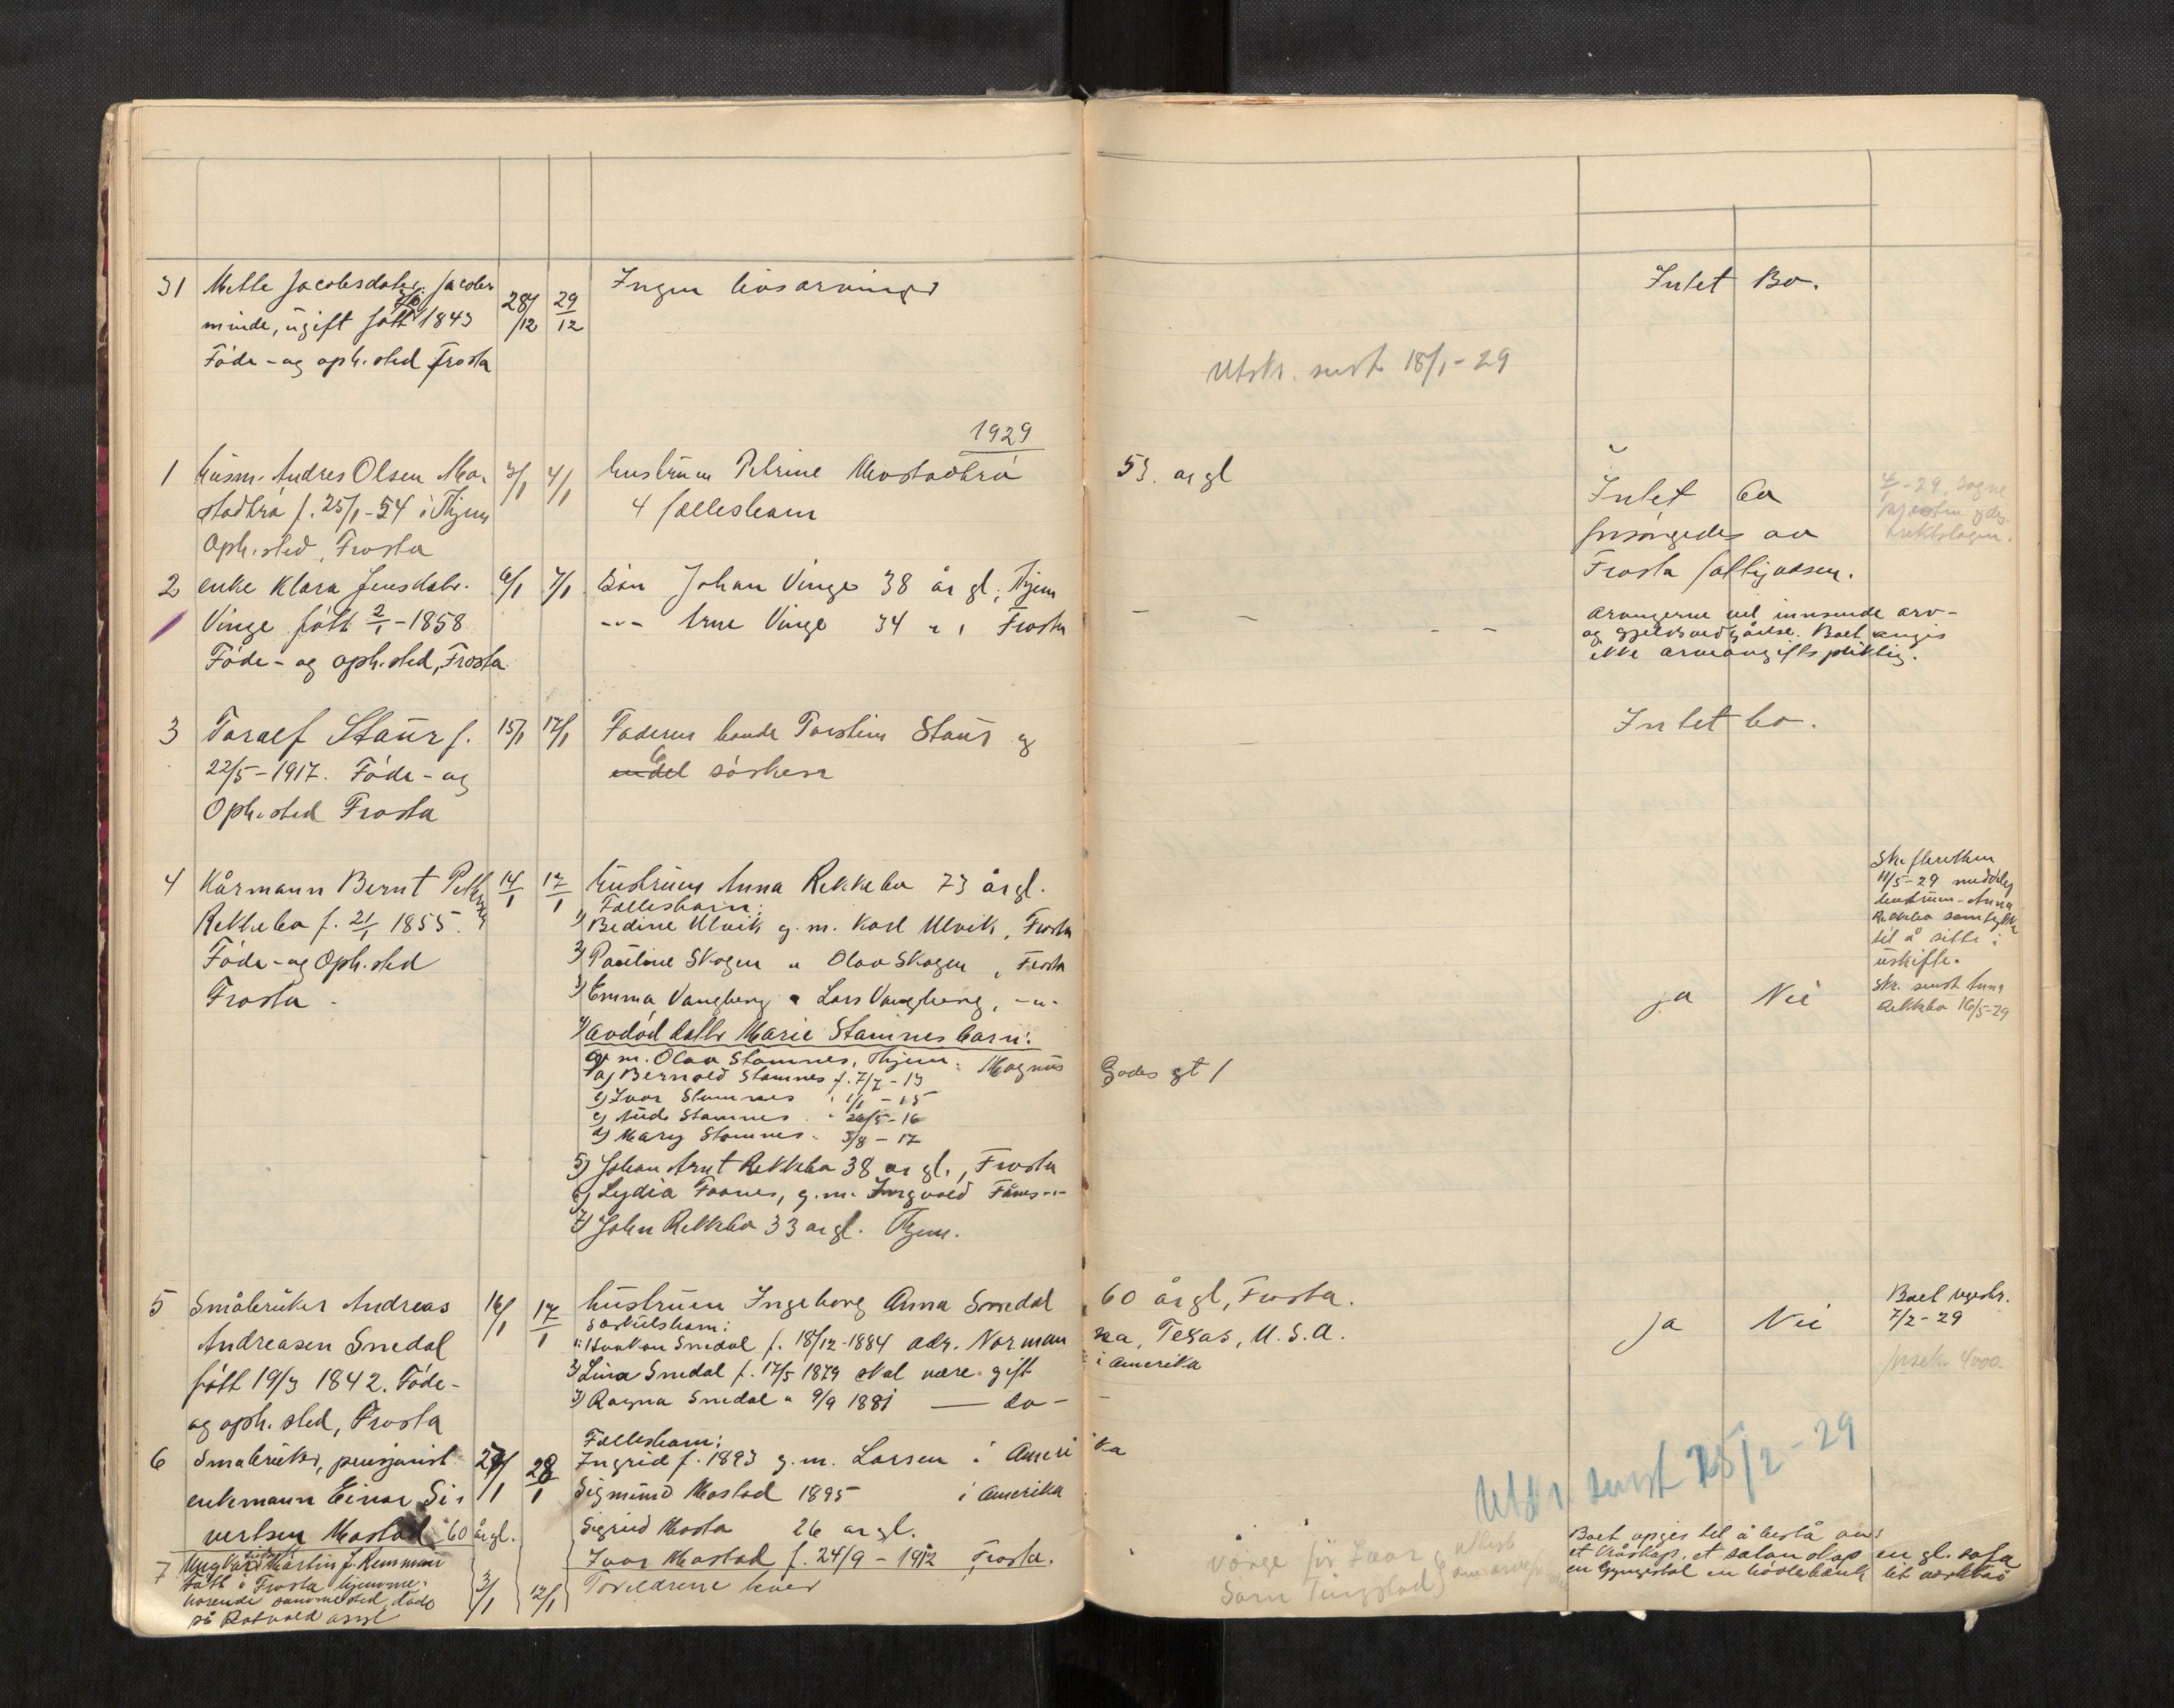 31 Mette Jacobsdatr. Jacobs
minde, ugift født 1843
Føde- og oph. sted Frosta
28/12 29/12
Ingen livsarvinger
Intet Bo.
Utskr. sendt 18/1-29
1929
1 husm. Andres Olsen Mo-
stadtrø f. 25/1-54 i Thjem
Oph. sted, Frosta
3/1 4/1
hustruen Petrine Mostadtrø
53. år gl
4 fællesbarn
Intet bo
forsørgedes av
Frosta fattigvæsen.
2 enke Klara Jensdatr.
Vinge født 2/1-1858
Føde- og oph. sted, Frosta
6/1 7/1
Søn Johan Vinge 38 år gl, Thjem
--- Arne Vinge 34 " " Frosta
arvingerne vil innsende arv-
og gjeldsvedgåelse. Boet angis
ikke arveavgiftspliktig.
3 Toralf Staur f.
22/5-1917. Føde- og
Oph. sted Frosta
15/1 17/1
Faderen bonde Torstein Staur og
6 søsken
Intet bo.
4 Kårmann Bernt
Rekkebo f. 21/1 1855.
Føde- og Oph. sted
Frosta
14/1 17/1
hustruen Anna Rekkebo 73 år gl.
Fællesbarn:
1) Bredine Ulvik g. m. Karl Ulvik, Frosta
2) Pauline Skogen " Olav Skogen, Frosta
3) Emma Vangberg " Lars Vangberg, -"-
4) avdød dattr Marie Stamnes barn:
g. m. Olav Stamnes, Thjem: Magnus
Godes gt /
a) Bernold Stamnes f. 7/7-13
b) Ivar Stamnes " 1/1-15
c) Aud Stamnes " 26/5-16
d) Mary Stamnes " 5/8-17
5) Johan Arnt Rekkebo 38 år gl., Frosta
6) Lydia Faanes, g. m. Ingvald Fånes -"-
7) John Rekkebo 33 år gl. Thjem.
ja Nei
Skifteretten
11/5-29 meddelt
hustruen Anna
Rekkebo samtykke
til å sitte i
uskifte.
Skr. sendt Anna
Rekkebo 16/5-29
5 Småbruker Andreas
Andreasen Smedal
født 19/3 1842. Føde-
og oph. sted, Frosta
16/1 17/1
hustruen Ingeborg Anna Smedal, 60 år gl, Frosta.
Særkulsbarn:
1) Haakon Smedal f. 18/12-1884 adr. Norman na, Texas, U.S.A.
2) Lina Smedal f. 17/5 1879 skal være gift i Amerika
3) Ragna Smedal " 9/9 1881 — do - -
ja Nei
Boet registr.
7/2-29
4000.
6 Småbruker, pensjonist
enkemann Einar Si-
vertsen Mostad 60 år gl.
27/1 28/1
Fællesbarn:
Ingrid f. 1893 g. m. Larsen i Amerika
Sigmund Mostad 1895 i Amerika
Sigrid Mosta 26 år gl.
Ivar Mostad f. 24/9-1912 Frosta.
Utskr. sendt 15/2-29
Verge for Ivar
Boet opgis til å bestå av
et klæskap, et salonskap, en gl. sofa
en gyngestol en høvlebenk
7 Martin J. Reinsmoen
født i Frosta hjemme-
hørende sammested, døde
på Rotvold asyl
3/1 12/1
Foreldrene lever